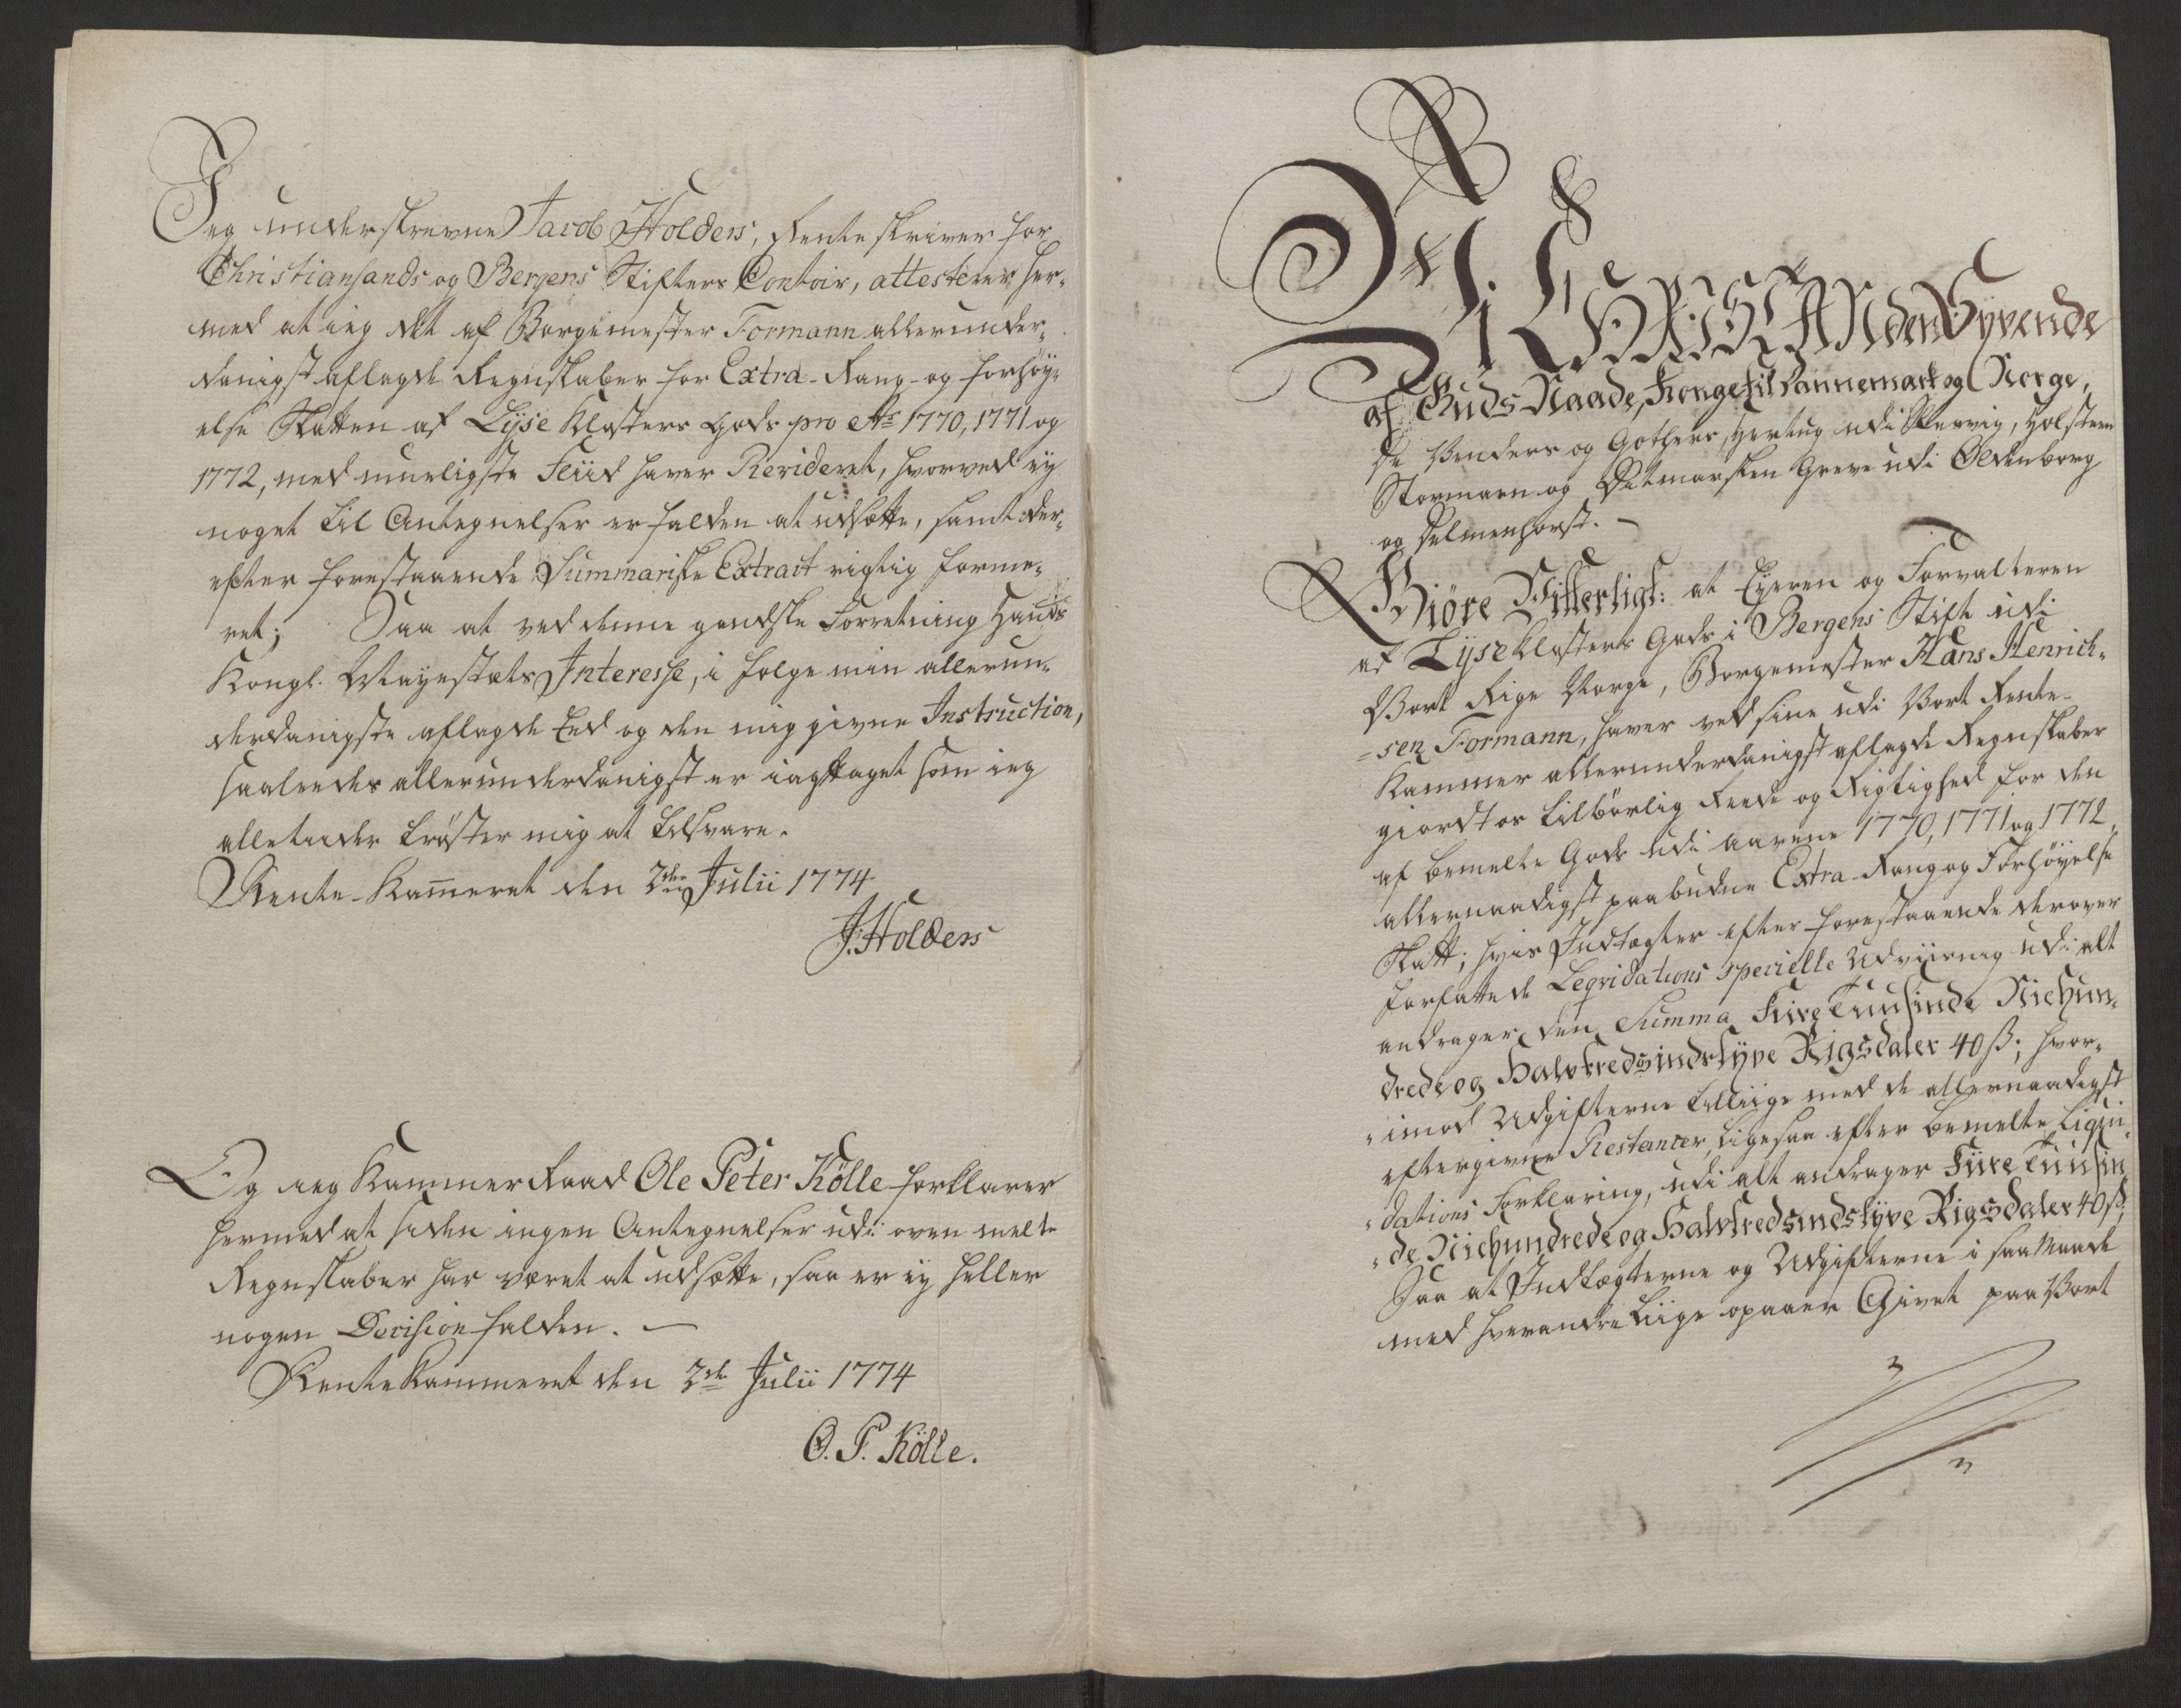 Jeg underskrevne Jacob Holdens, Renteskriver for
Christiansands og Bergens Stifters Contoir, attesterer her-
med at ieg det af Borgemester Formann allerunder-
danigst aflagde Regnskaber for Extra-Rang- og Forhøy-
else Skatten af Lyse Klosters Gods pro Ao 1770, 1771 og
1772, med muuligste Fliid haver Revideret, hvorved ey
noget til Antegnelser er falden at udsætte, samt der-
efter forestaaende Summariske Extract rigtig forme-
ret; Saa at ved denne gandske Forretning Hans
Kongl. Mayestæts Interesse, i følge min allerun-
derdanigste aflagde Eed og den mig givne Instruction,
saaledes allerunderdanigst er iagttaget som ieg
alletiider trøster mig at tilsvare.
Rente-Kam̅eret den 2den Julii 1774
J. Holdens
Og ieg KammerRaad Ole Peter Kölle forklarer
hermed at siden ingen Antegnelser udi oven melte
Regnskaber har været at udsætte, saa er ey heller
nogen Decision falden. —
RenteKammeret den 2de Julii 1774
O. P. Kölle.
Vi CHRISTIAN den Syvende
af Guds Naade, Konge til Dannemark og Norge,
de Venders og Gothers, Hertug udi Slesvig, Holsteen
Stormarn og Ditmarsken Greve udi Oldenborg
og Delmenhorst. —
Giöre Vitterligt: at Eyeren og Forvalteren
af Lyse Klosters Gods i Bergens Stift udi
Vort Rige Norge, Borgemester Hans Henrich-
=sen Formann, haver ved sine udi Vort Rente-
Kammer allerunderdanigst aflagde Regnskaber
giordt os tilbörlig Reede og Rigtighed for den
af bemelte Gods udi aarene 1770, 1771 og 1772,
allernaadigst paabudne Extra-Rang og Forhöyelse
Skatt; hvis Indtægter efter forestaaende derover
forfattede Leqvidations specielle Udviisning udi alt
andrager den Summa Fire Tuusinde Nichun-
drede og Halvtredsindstyve Rigsdaler 40 ß; hvor-
-imod Udgifterne tilliige med de allernaadigst
eftergivne Restancer, ligesaa efter bemelte Liqvi-
-dations Forklaring, udi alt andrager Fiire Tuusin
-de Nichundrede og Halvtredsindstyve Rigsdaler 40 ß;
Saa at Indtægterne og Udgifterne i saa Maade
med hverandre liige opgaaer Givet paa Vort